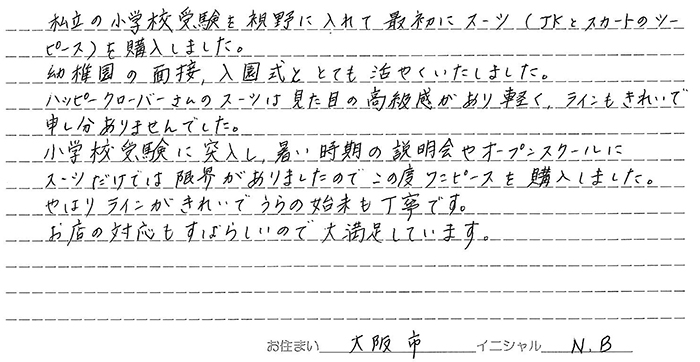 私立の小学校受験を視野に入れて最初にスーツ（JKとスカートのツー
ピース）を購入しました。
幼稚園の面接、入園式ととても活やくいたしました。
ハッピークローバーさんのスーツは見た目の高級感があり軽く、ラインもきれいで
申し分ありませんでした。
小学校受験に突入し、暑い時期の説明会やオープンスクールに
スーツだけでは限界がありましたのでこの度ワンピースを購入しました。
やはりラインがきれいでうらの始末も丁寧です。
お店の対応もすばらしいので大満足しています。
お住まい 大阪市 イニシャル N.B